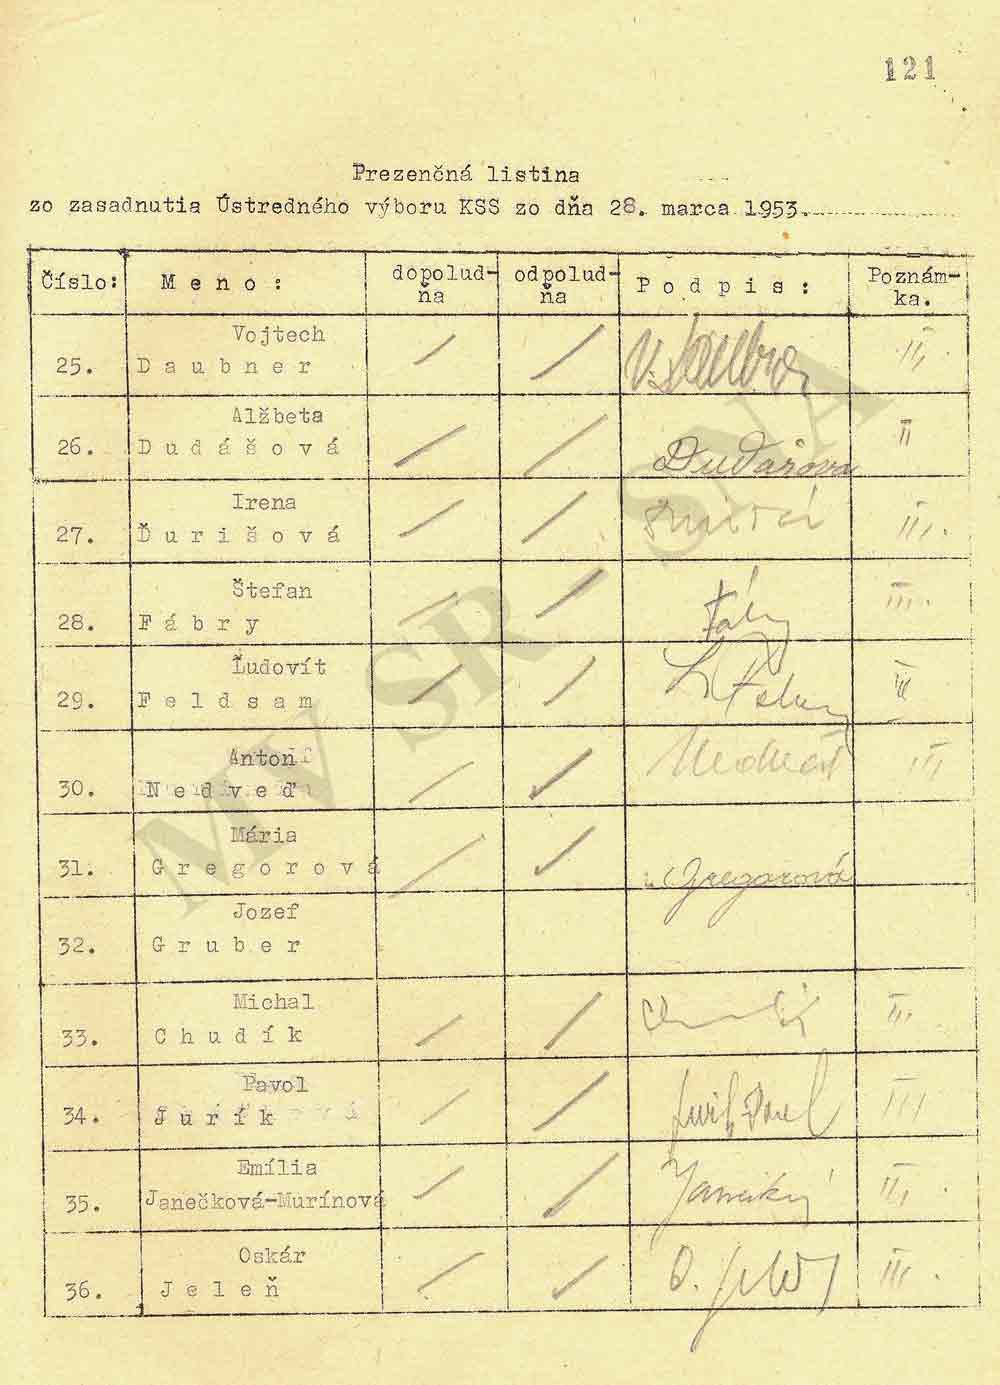 121
Prezenčná listina
zo zasadnutia Ústredného výboru KSS zo dňa 28. marca 1953.
Číslo: Meno: dopolud-ňa odpolud-ňa Podpis: Poznám-ka.
Vojtech
25. Daubner / / V. Daubner III.
Alžbeta
26. Dudášová / / Dudášova II
Irena
27. Ďurišová / / III.
Štefan
28. Fábry / / Fábry III.
Ľudovít
29. Feldsam / / III
Anton
30. Nedveď / / III
Mária
31. Gregorová / / Gregorová
Jozef
32. Gruber
Michal
33. Chudík / / Chudík III.
Pavol
34. Jurík / / Jurík Pavel III
Emília
35. Janečková-Murínová / / III.
Oskár
36. Jeleň / / O. Jeleň III.
MV SR - SNA